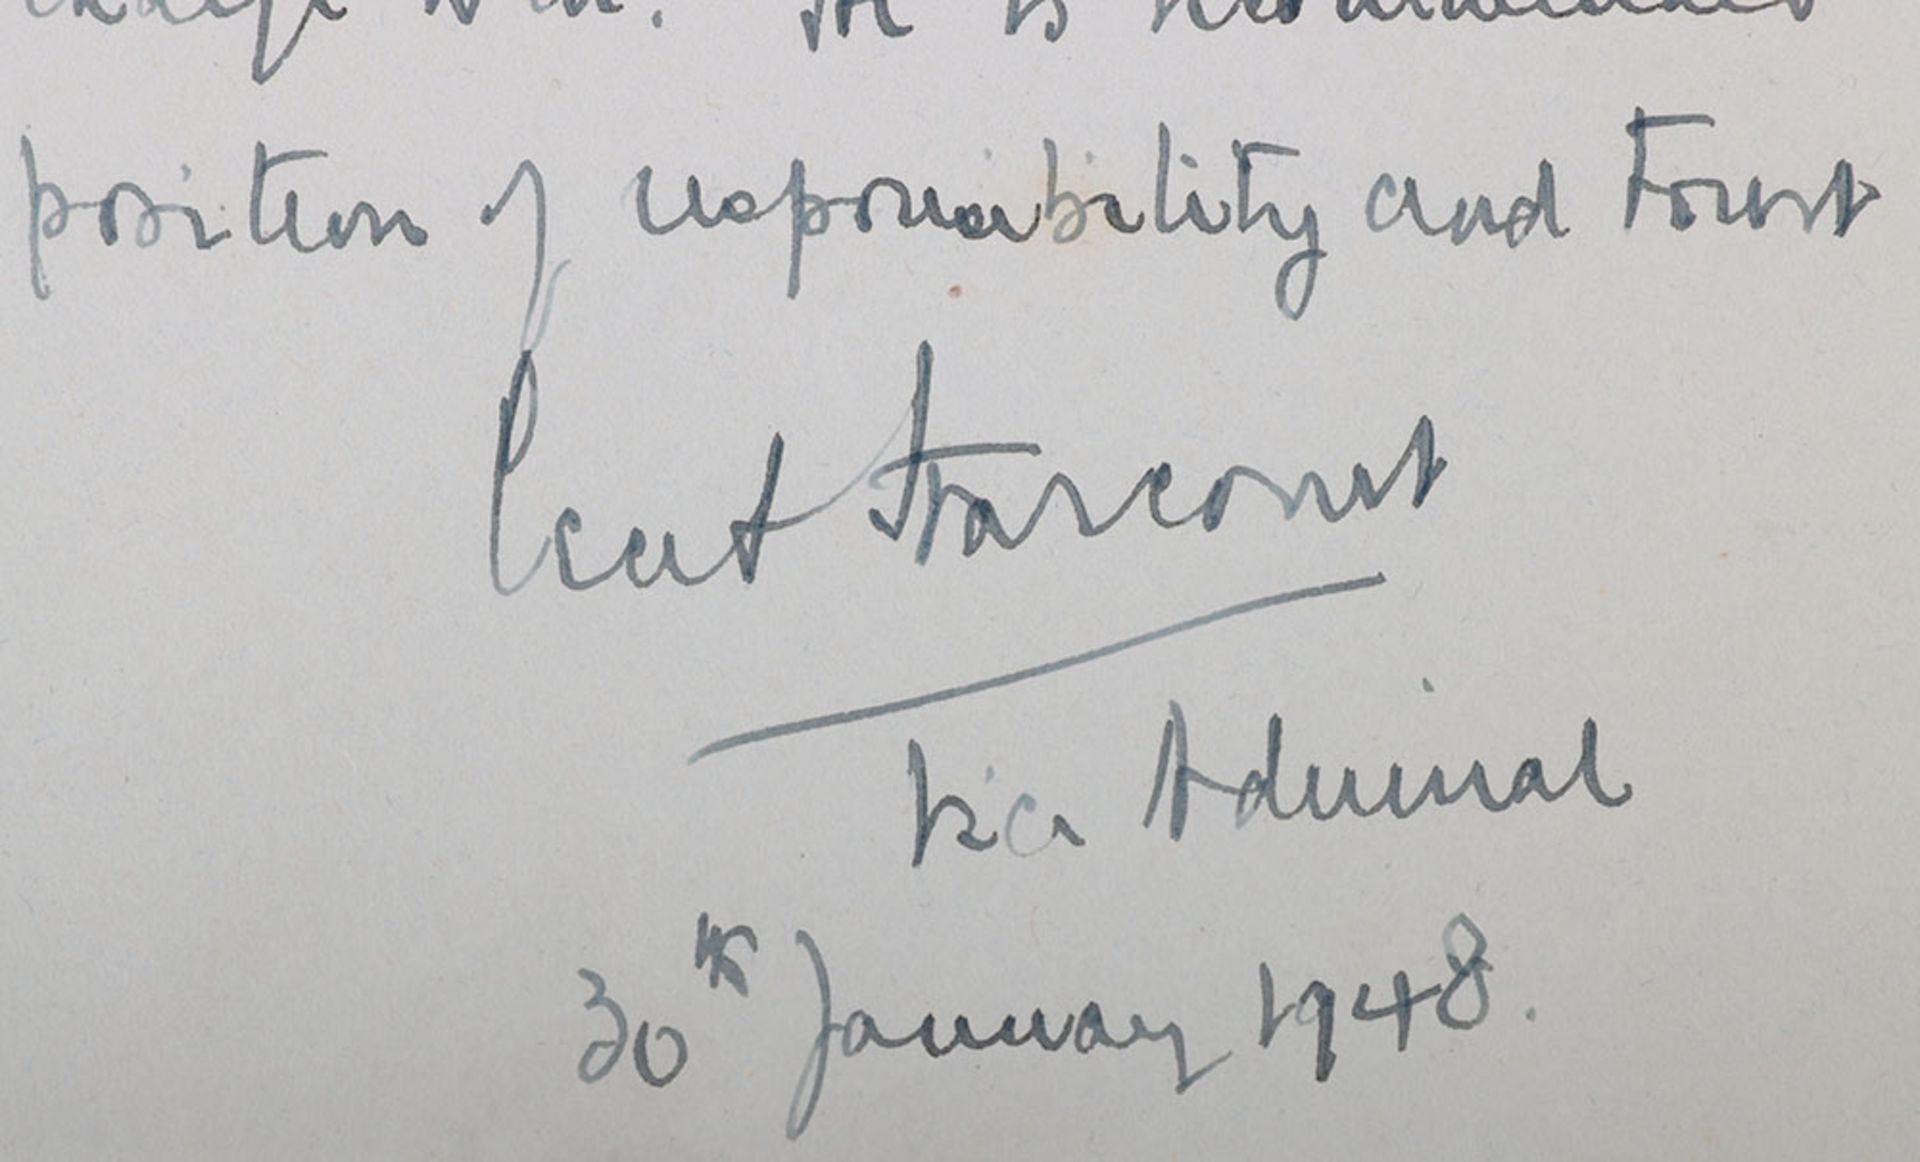 He is recommended
position of responsibility and Trust
Cecil Harcourt
Vice Admiral
30th January 1948.